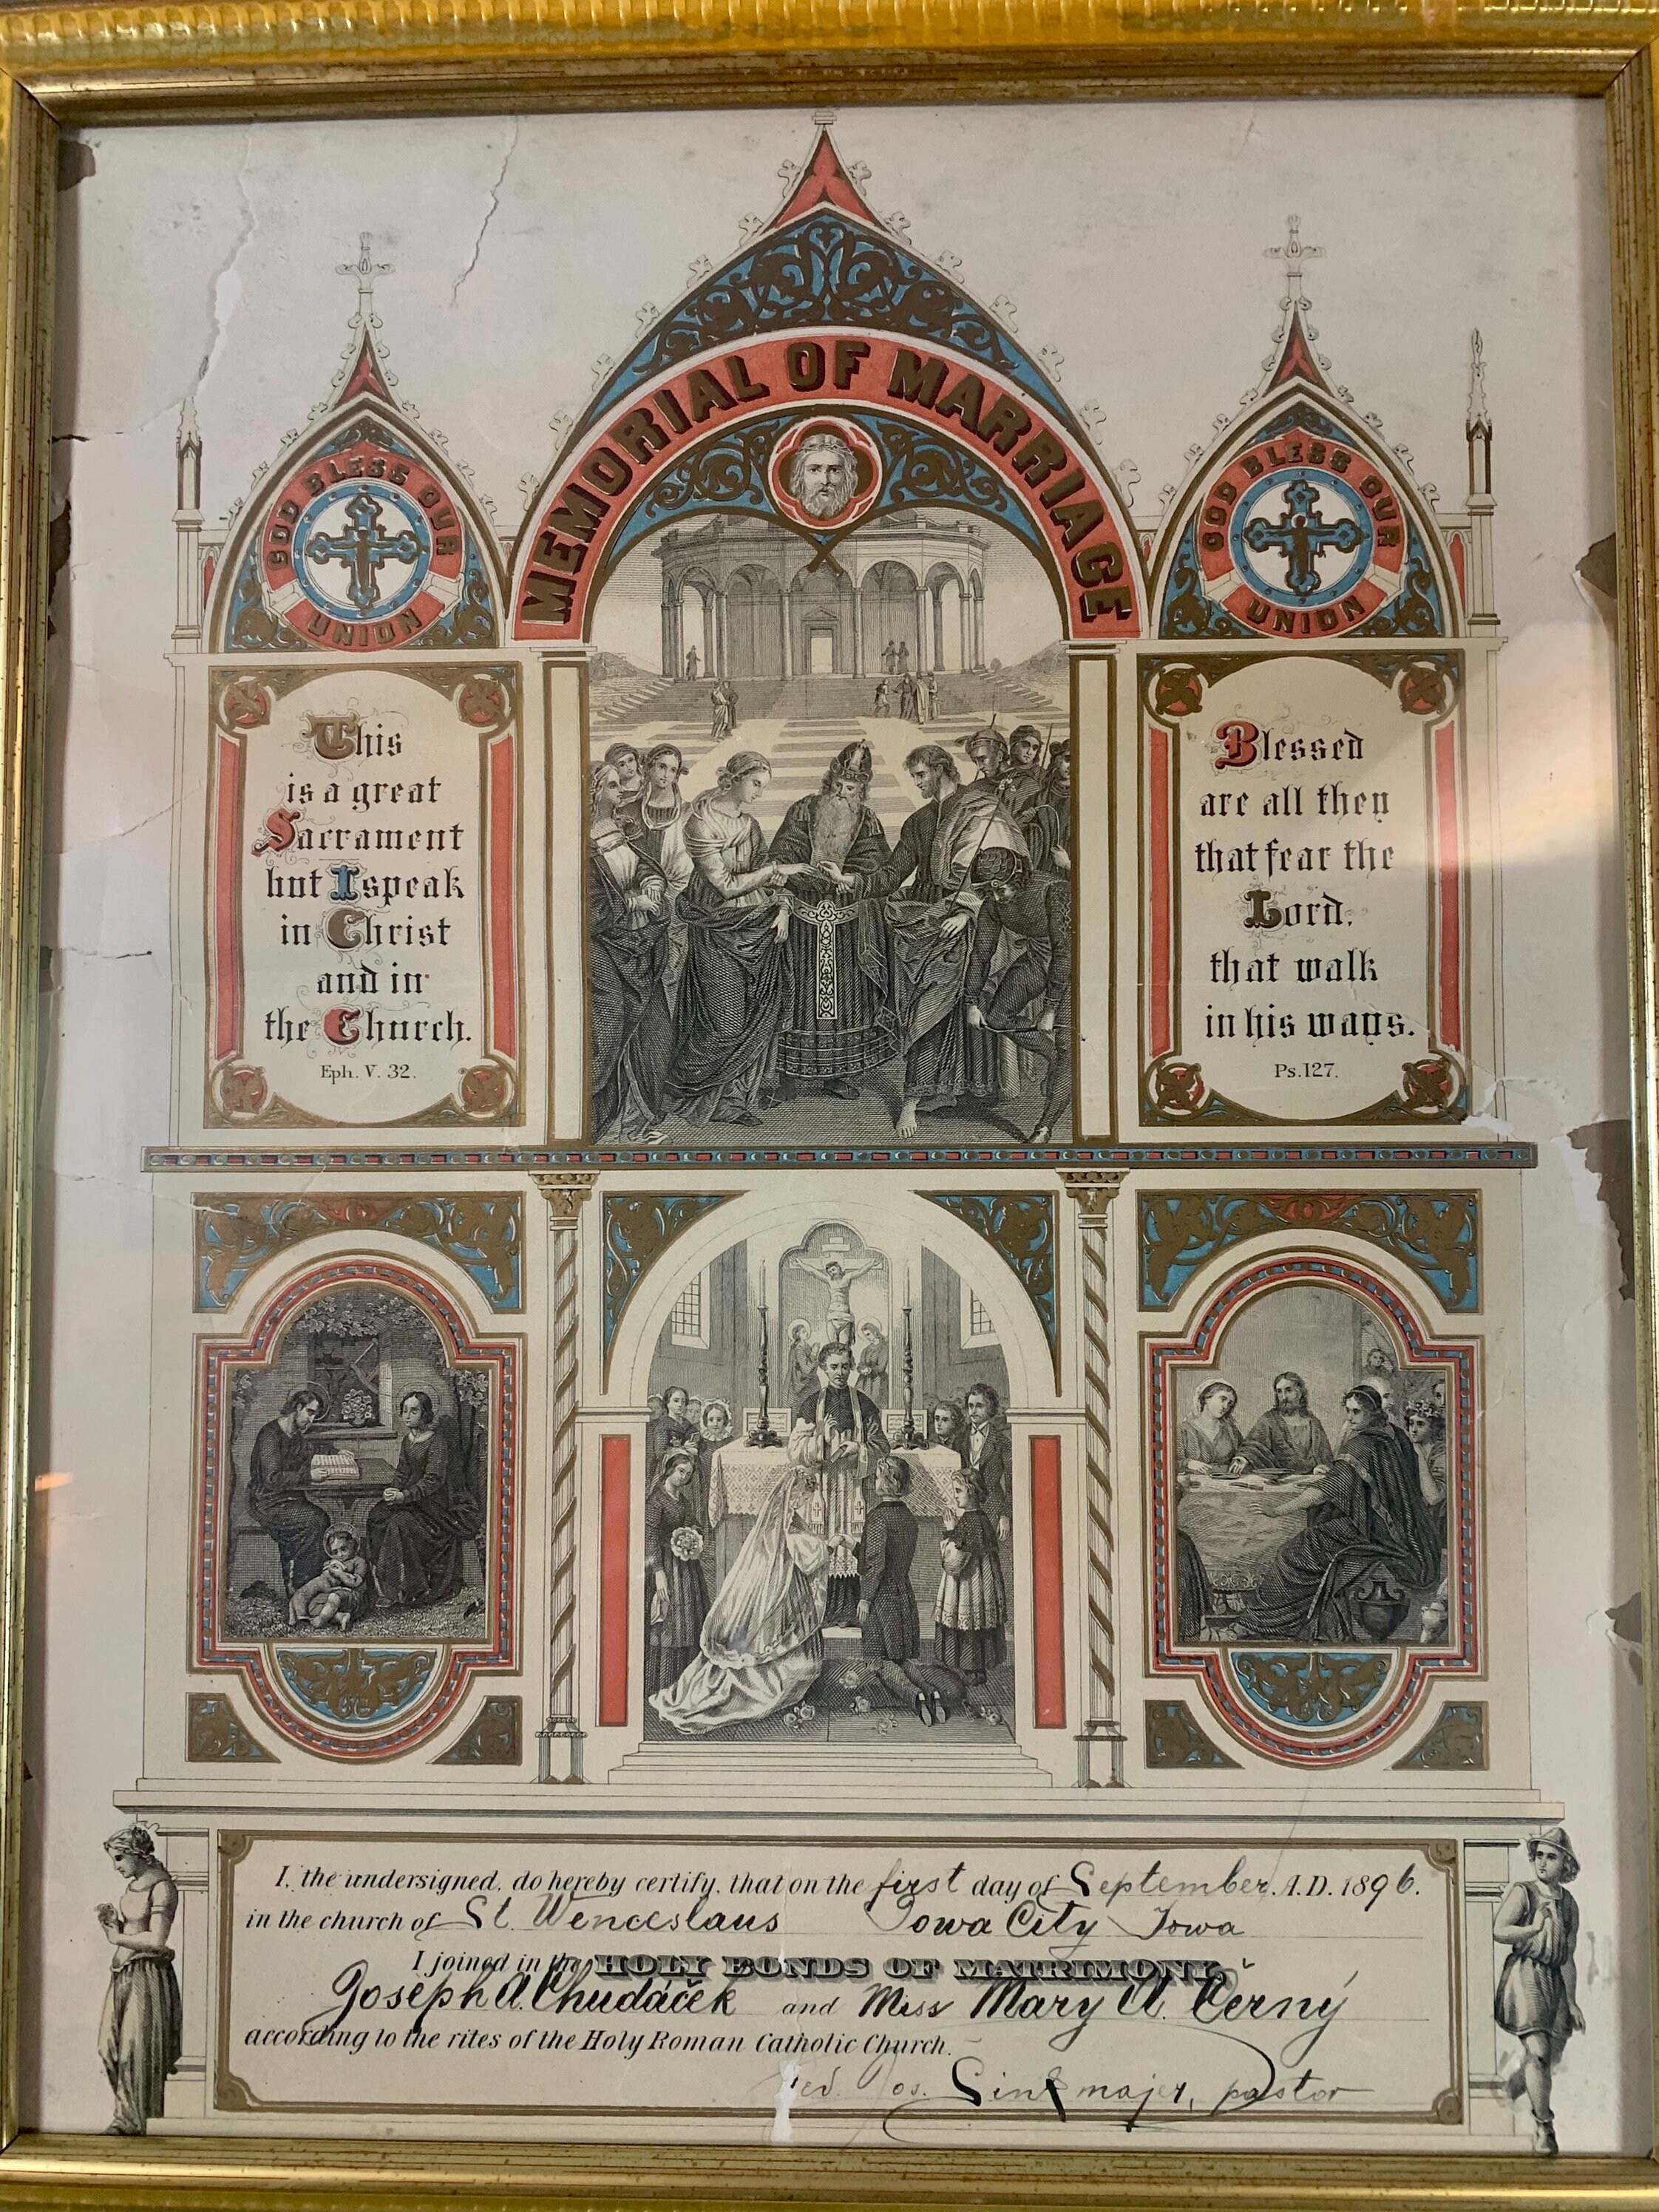 MEMORIAL OF MARRIAGE
GOD BLESS OUR
UNION
GOD BLESS OUR
UNION
This
is a great
Sacrament
but I speak
in Christ
and in
the Church.
Eph. V. 32.
Blessed
are all they
that fear the
Lord.
that walk
in his ways.
Ps. 127.
I, the undersigned, do hereby certify, that on the first day of September, A.D. 1896.
in the church of St. Wenceslaus Iowa City Iowa
I joined in the HOLY BONDS OF MATRIMONY
Joseph A. Chudáček and Miss Mary A. Černý
according to the rites of the Holy Roman Catholic Church.
Jos. Sinkmajer, pastor